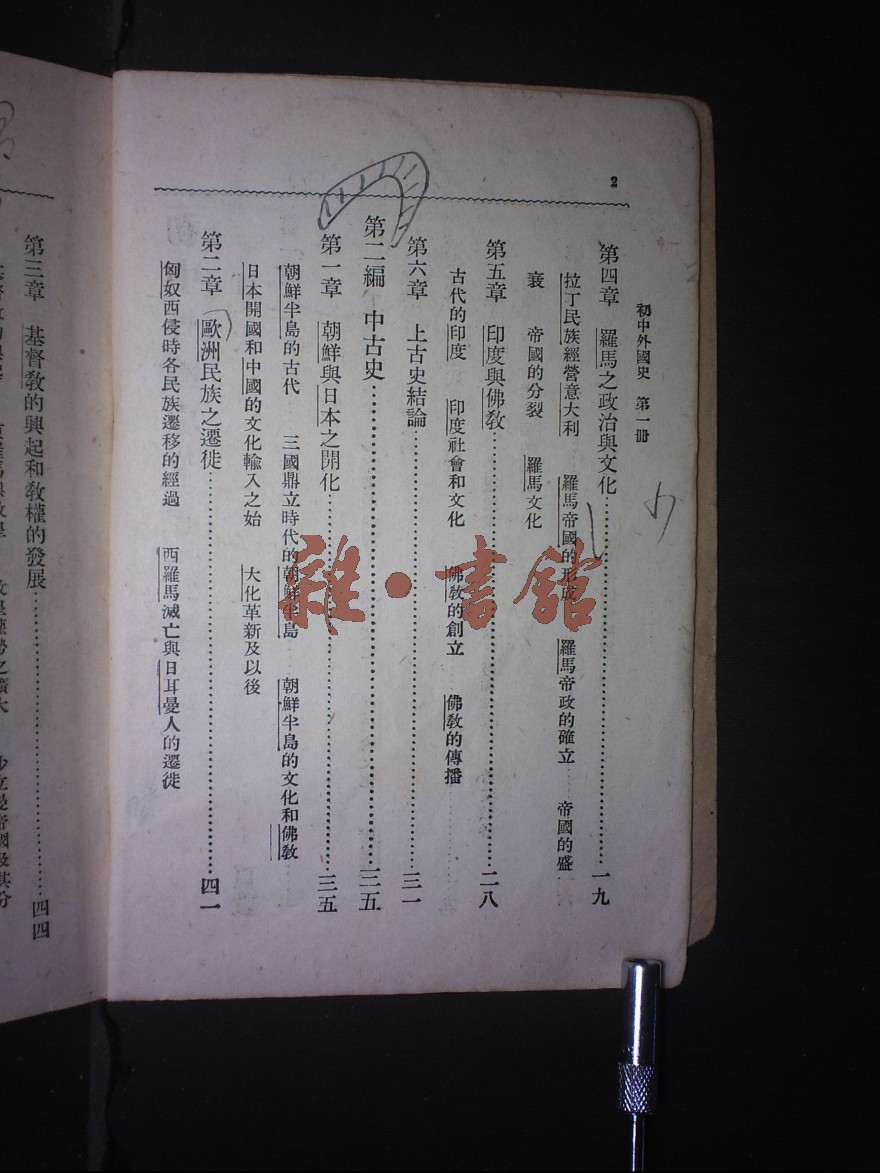 2
初中外國史　第一冊
第四章　羅馬之政治與文化……一九
拉丁民族經營意大利　羅馬帝國的形成　羅馬帝政的確立　帝國的盛
衰　帝國的分裂　羅馬文化
第五章　印度與佛敎……二八
古代的印度　印度社會和文化　佛敎的創立　佛敎的傳播
第六章　上古史結論……三一
第二編　中古史……三五
第一章　朝鮮與日本之開化……三五
朝鮮半島的古代　三國鼎立時代的朝鮮半島　朝鮮半島的文化和佛敎
日本開國和中國的文化輸入之始　大化革新及以後
第二章　歐洲民族之遷徙……四一
匈奴西侵時各民族遷移的經過　西羅馬滅亡與日耳曼人的遷徙
第三章　基督敎的興起和敎權的發展……四四
雜·書館